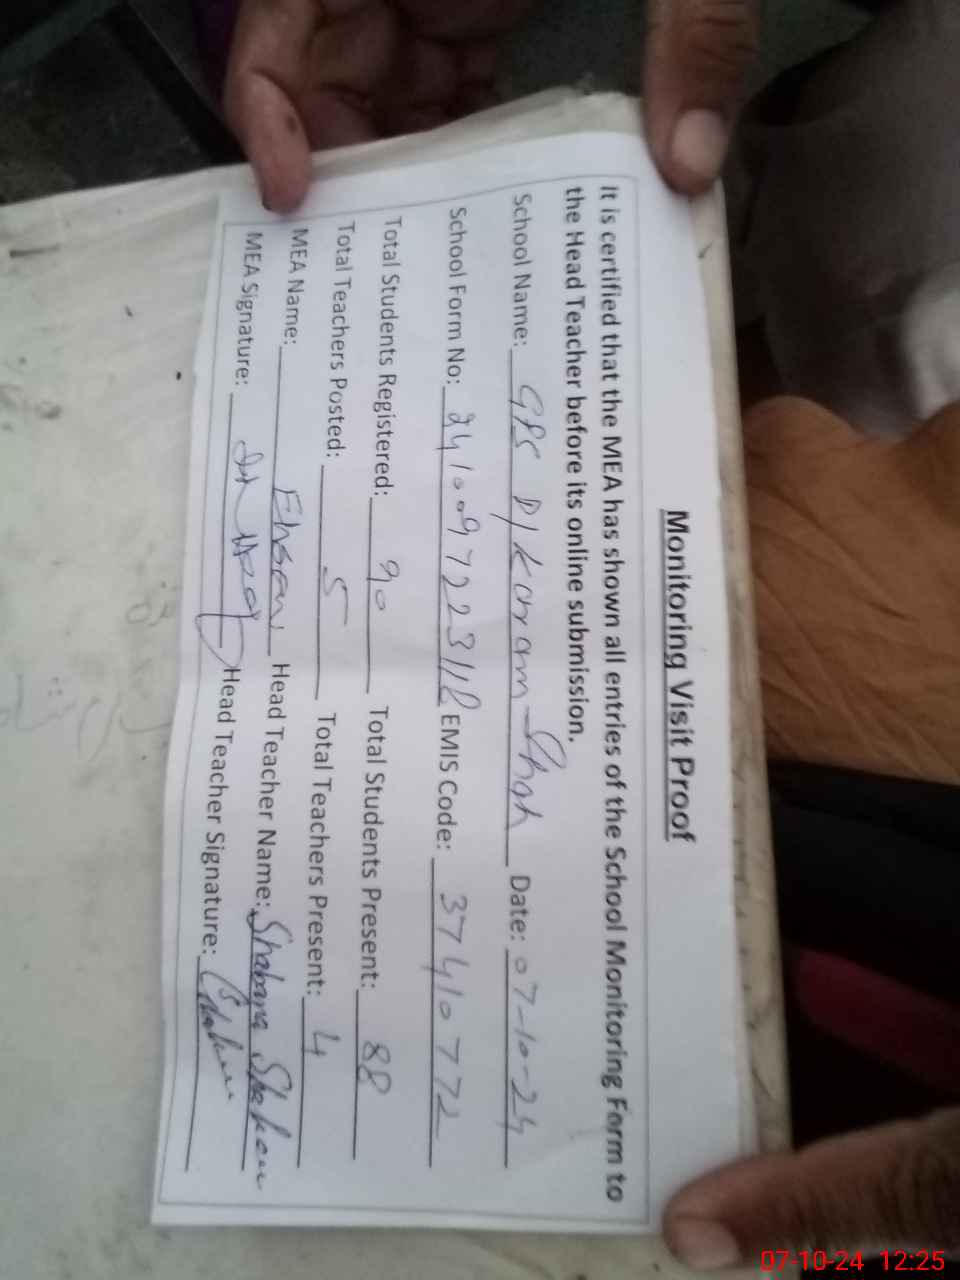 Monitoring Visit Proof
It is certified that the MEA has shown all entries of the School Monitoring Form to
the Head Teacher before its online submission.
School Name: GPS D/Karam Shah Date: 07-10-24
School Form No: EMIS Code: 37410772
Total Students Registered: 90 Total Students Present: 88
Total Teachers Posted: 5 Total Teachers Present: 4
MEA Name: Head Teacher Name: Shabana Shaheen
MEA Signature: Head Teacher Signature:
07-10-24 12:25